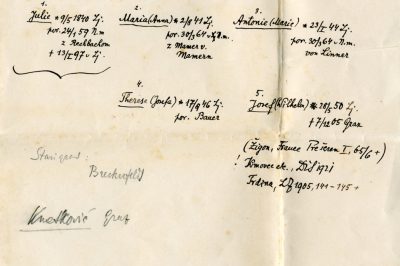 1.
Julie * 9/5 1840 Lj.
por. 24/1 59 N.m.
z Rechbachom
+ 13/I 97 v Lj.
2.
Maria (Anna) * 2/8 41 Lj.
por. 30/5 64 v N.m.
z Mamer v.
Mamern
3.
Antonie (Marie) * 23/I 44 Lj.
por. 30/5 64 v N.m.
von Linner
4.
Therese (Josefa) * 17/9 46 Lj.
por. Bauer
5.
Josef (Wilhelm) * 20/3 50 Lj.
+ 7/11 05 Graz
(Žigon, France Prešeren I, 65/6 +)
! DiS 1921
Frdina, LZ 1905, 141-145 +
Starigrad:
Breckerfeld
Knesković Graf